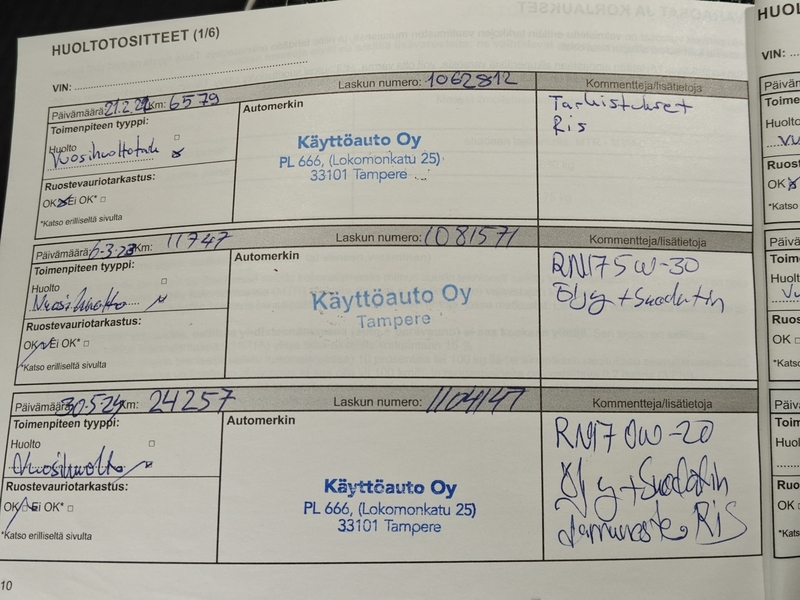 HUOLTOTOSITTEET (1/6)
VIN:
Päivämäärä: 21.2.22 Km: 6579 Laskun numero: 1062812 Kommentteja/lisätietoja
Toimenpiteen tyyppi: Automerkin
Huolto
Vuosihuolto
Ruostevauriotarkastus:
OK Ei OK*
*Katso erilliseltä sivulta
Käyttöauto Oy
PL 666, (Lokomonkatu 25)
33101 Tampere
Tarkistukset
Ris
Päivämäärä: 6.3.23 Km: 11747 Laskun numero: 1081571 Kommentteja/lisätietoja
Toimenpiteen tyyppi: Automerkin
Huolto
Vuosihuolto
Ruostevauriotarkastus:
OK Ei OK*
*Katso erilliseltä sivulta
Käyttöauto Oy
Tampere
RN17 5W-30
Öljy + Suodatin
Päivämäärä: 30.5.24 Km: 24257 Laskun numero: 1104147 Kommentteja/lisätietoja
Toimenpiteen tyyppi: Automerkin
Huolto
Vuosihuolto
Ruostevauriotarkastus:
OK Ei OK*
*Katso erilliseltä sivulta
Käyttöauto Oy
PL 666, (Lokomonkatu 25)
33101 Tampere
RN17 0W-20
Öljy + Suodatin
Jarruneste, RiS
10
HUOL
VIN:
Huolto
OK
*Katso
Huolto
OK
*Katso
Huolto
OK
*Katso